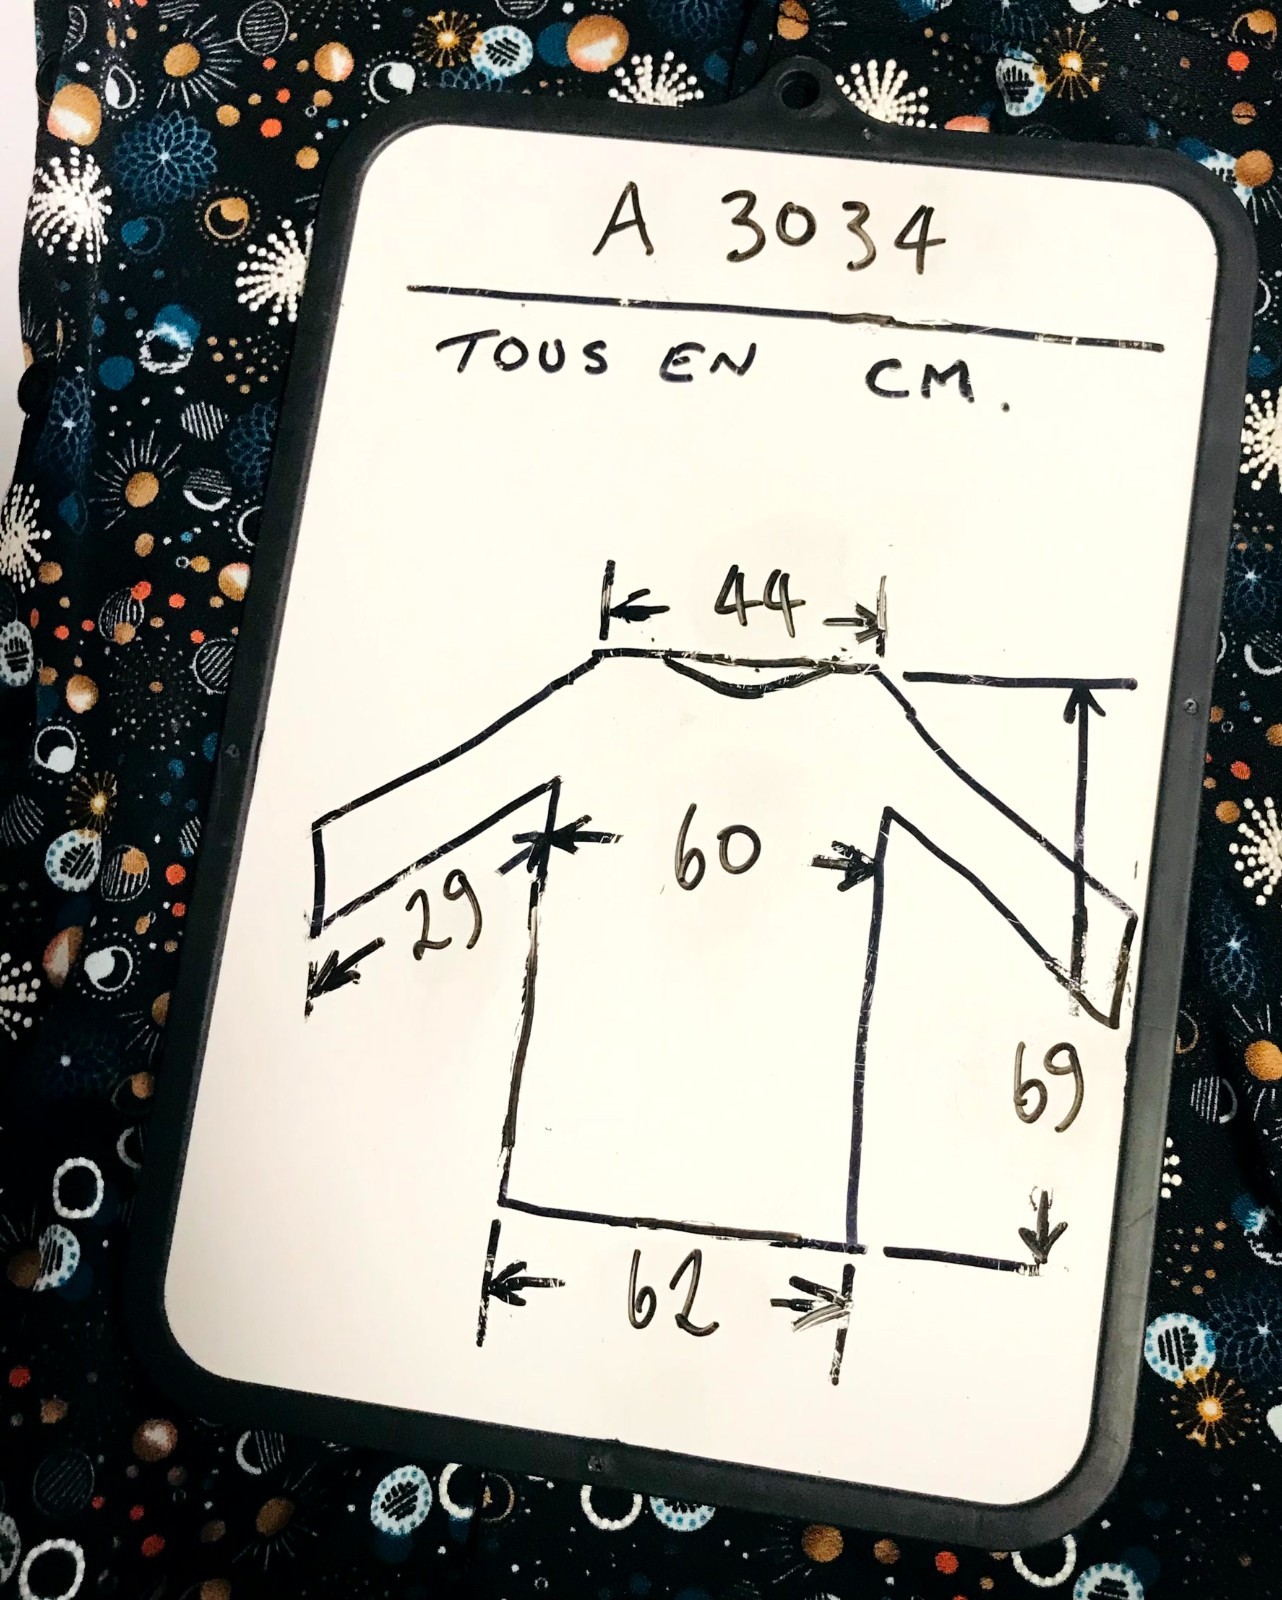 A 3034
TOUS EN CM.
44
60
29
69
62